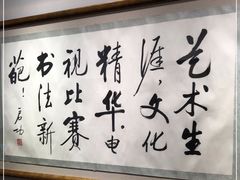 艺术生
涯，文化
精华，电
视比赛
书法新
葩！启功